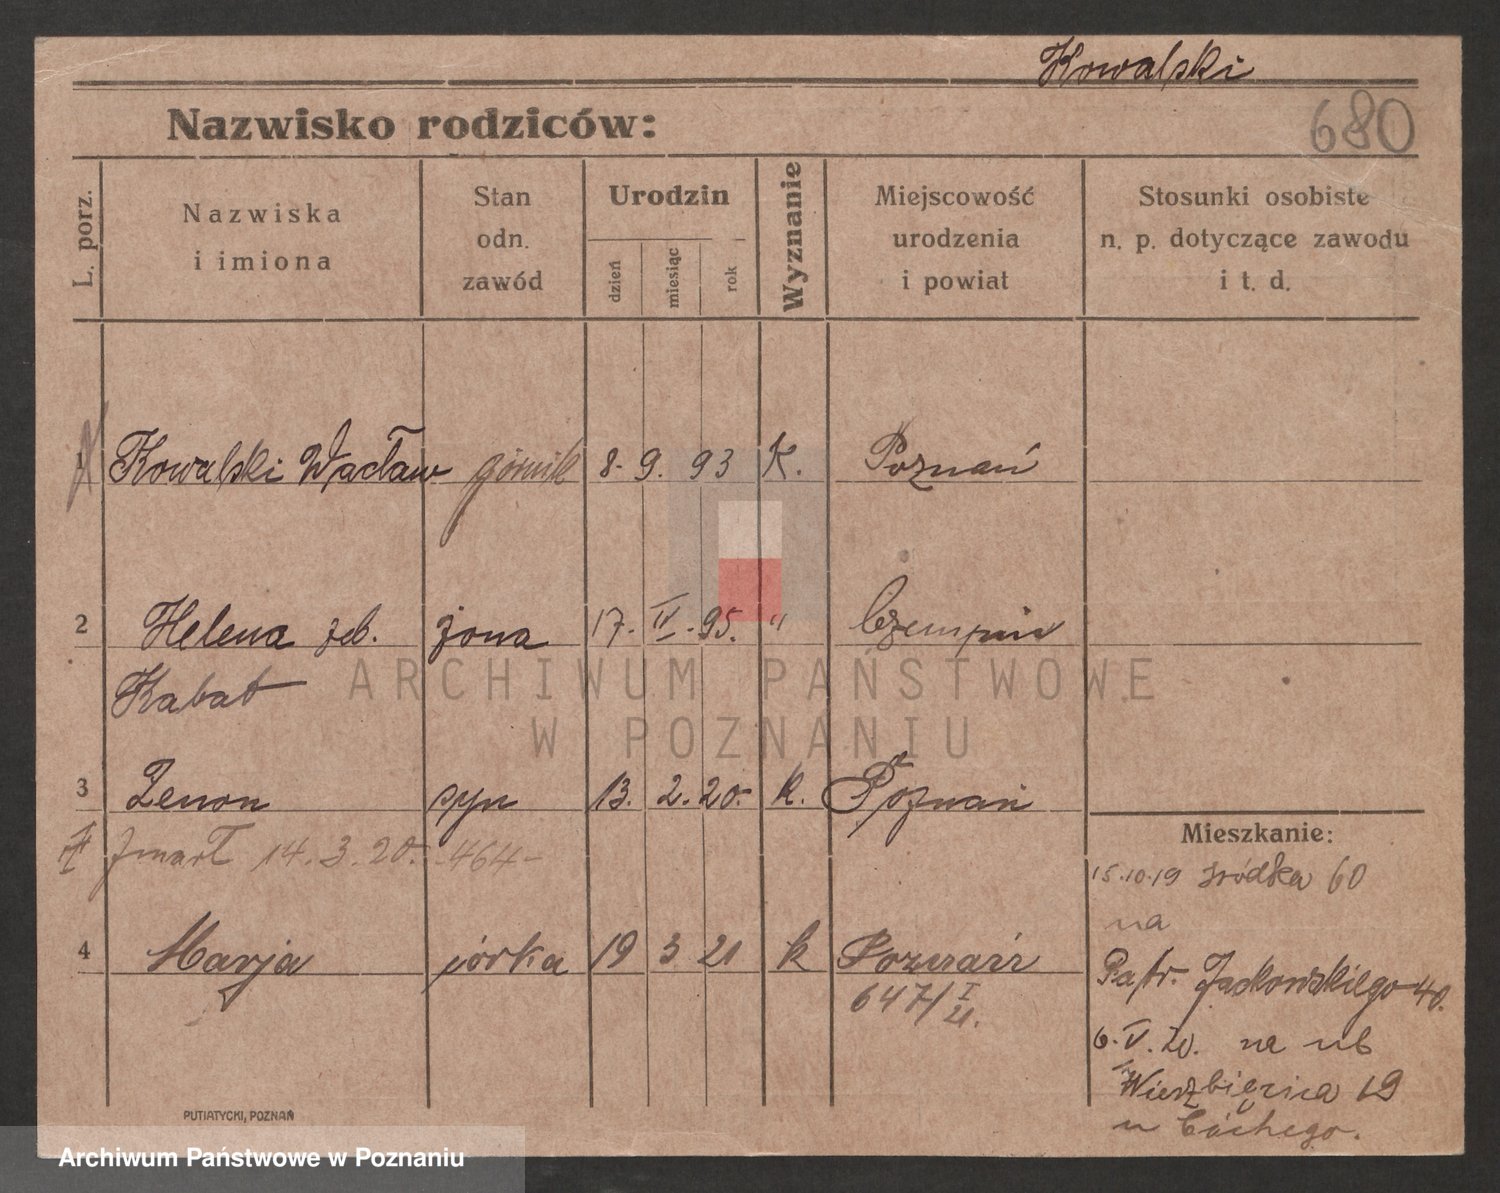 Kowalski
Nazwisko rodziców:
680
L. porz.
Nazwiska
i imiona
Stan
odn.
zawód
Urodzin
dzień
miesiąc
rok
Wyznanie
Miejscowość
urodzenia
i powiat
Stosunki osobiste
n. p. dotyczące zawodu
i t. d.
1 Kowalski Wacław górnik 8. 9. 93 K. Poznań
2 Helena żona 17. IV. 95. " Czempiń
Kabat
ARCHIWUM PAŃSTWOWE
W POZNANIU
3 Zenon syn 13. 2. 20. k. Poznań
Zmarł 14. 3. 20. -464-
Mieszkanie:
15.10.19 Śródka 60
na
4 Marja córka 19 3 21 k Poznań
Patr. Jackowskiego 40.
647/I
21.
6. V. 20. na ul
Wierzbięcica 19
u
PUTIATYCKI, POZNAŃ
Archiwum Państwowe w Poznaniu